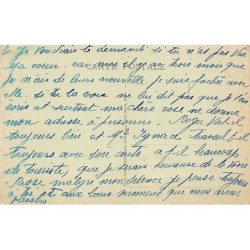 Je voudrais te demander si tu n'as pas vu
ma soeur. car moi il y a trois mois que
je n'ais de leurs nouvelle. je suis fachée avec
elle. si tu la vois ne lui dit pas que je t'ai
et surtout ma chère rose ne donne
mon adresse à personne. Roger
toujours bien et Mr Ignace travaille
toujours avec son auto a fait beaucoup
de touriste, que je serais heureuse de te voir
Rose malgré mon silence je pense toujours
à toi et aux bons moments que nous avons
passés